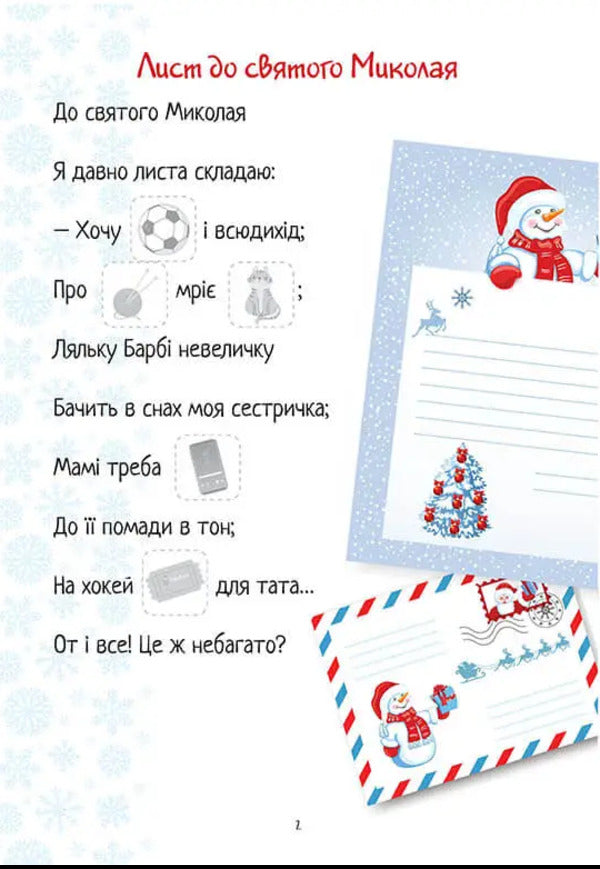 Лист до святого Миколая
До святого Миколая
Я давно листа складаю:
– Хочу і всюдихід;
Про мріє ;
Ляльку Барбі невеличку
Бачить в снах моя сестричка;
Мамі треба
До її помади в тон;
На хокей для тата...
От і все! Це ж небагато?
2